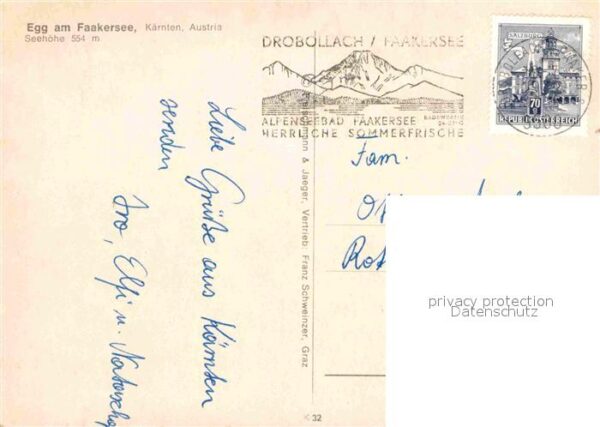 Egg am Faakersee, Kärnten, Austria
Seehöhe 554 m
DROBOLLACH / FAAKERSEE
ALPENSEEBAD FAAKERSEE
HERRLICHE SOMMERFRISCHE
SALZBURG
70
REPUBLIK ÖSTERREICH
Liebe Grüße aus Kärnten
senden
Ivo, Elfi u.
& Jaeger, Vertrieb: Franz Schweinzer, Graz
Fam.
K 32
privacy protection
Datenschutz